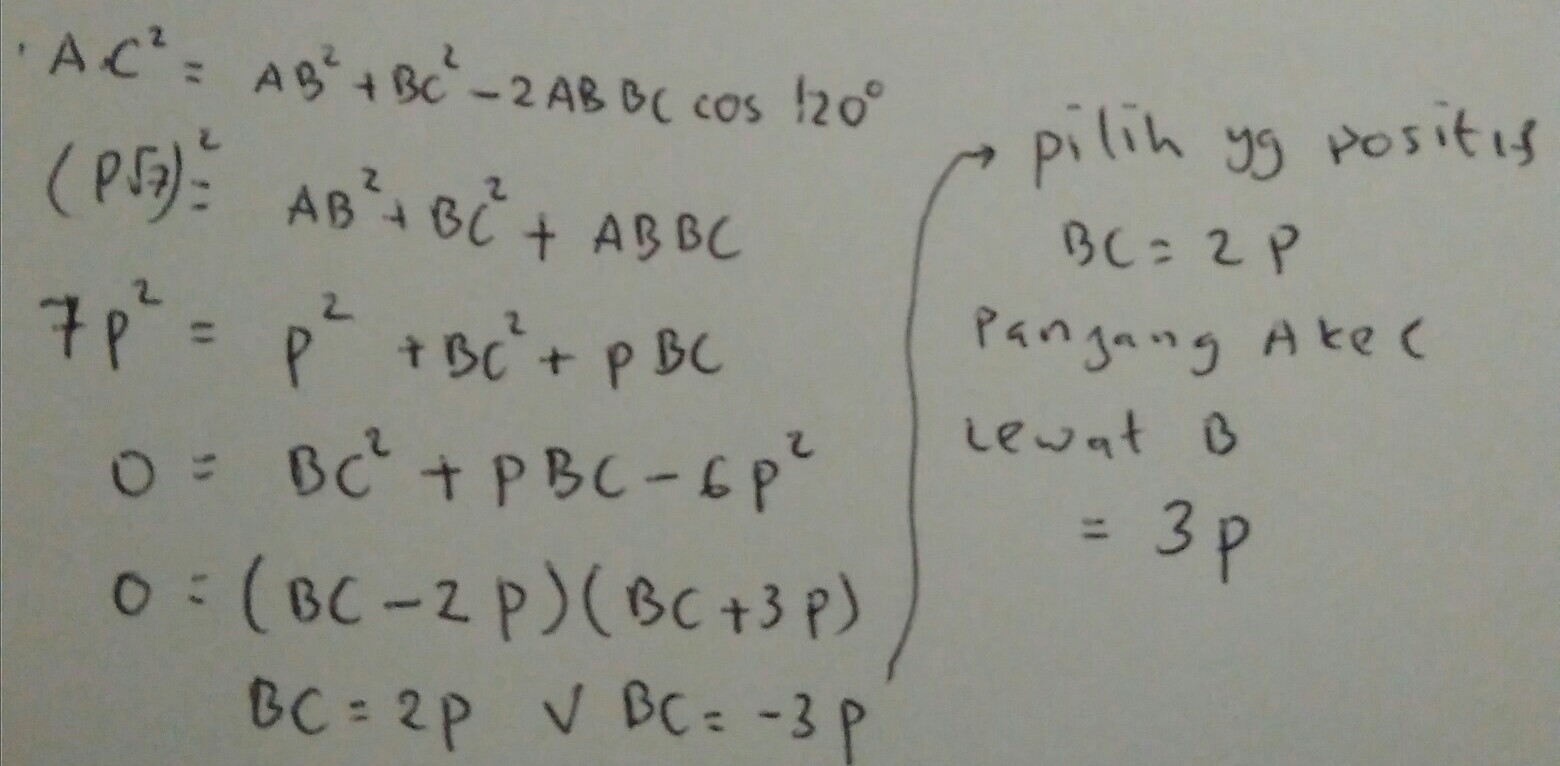 AC² = AB² + BC² - 2 AB BC cos 120°
(p√7)² = AB² + BC² + AB BC
7p² = p² + BC² + p BC
0 = BC² + p BC - 6p²
0 = (BC - 2p)(BC + 3p)
BC = 2p ∨ BC = -3p
→ pilih yg positif
BC = 2p
Panjang A ke C
Lewat B
= 3p